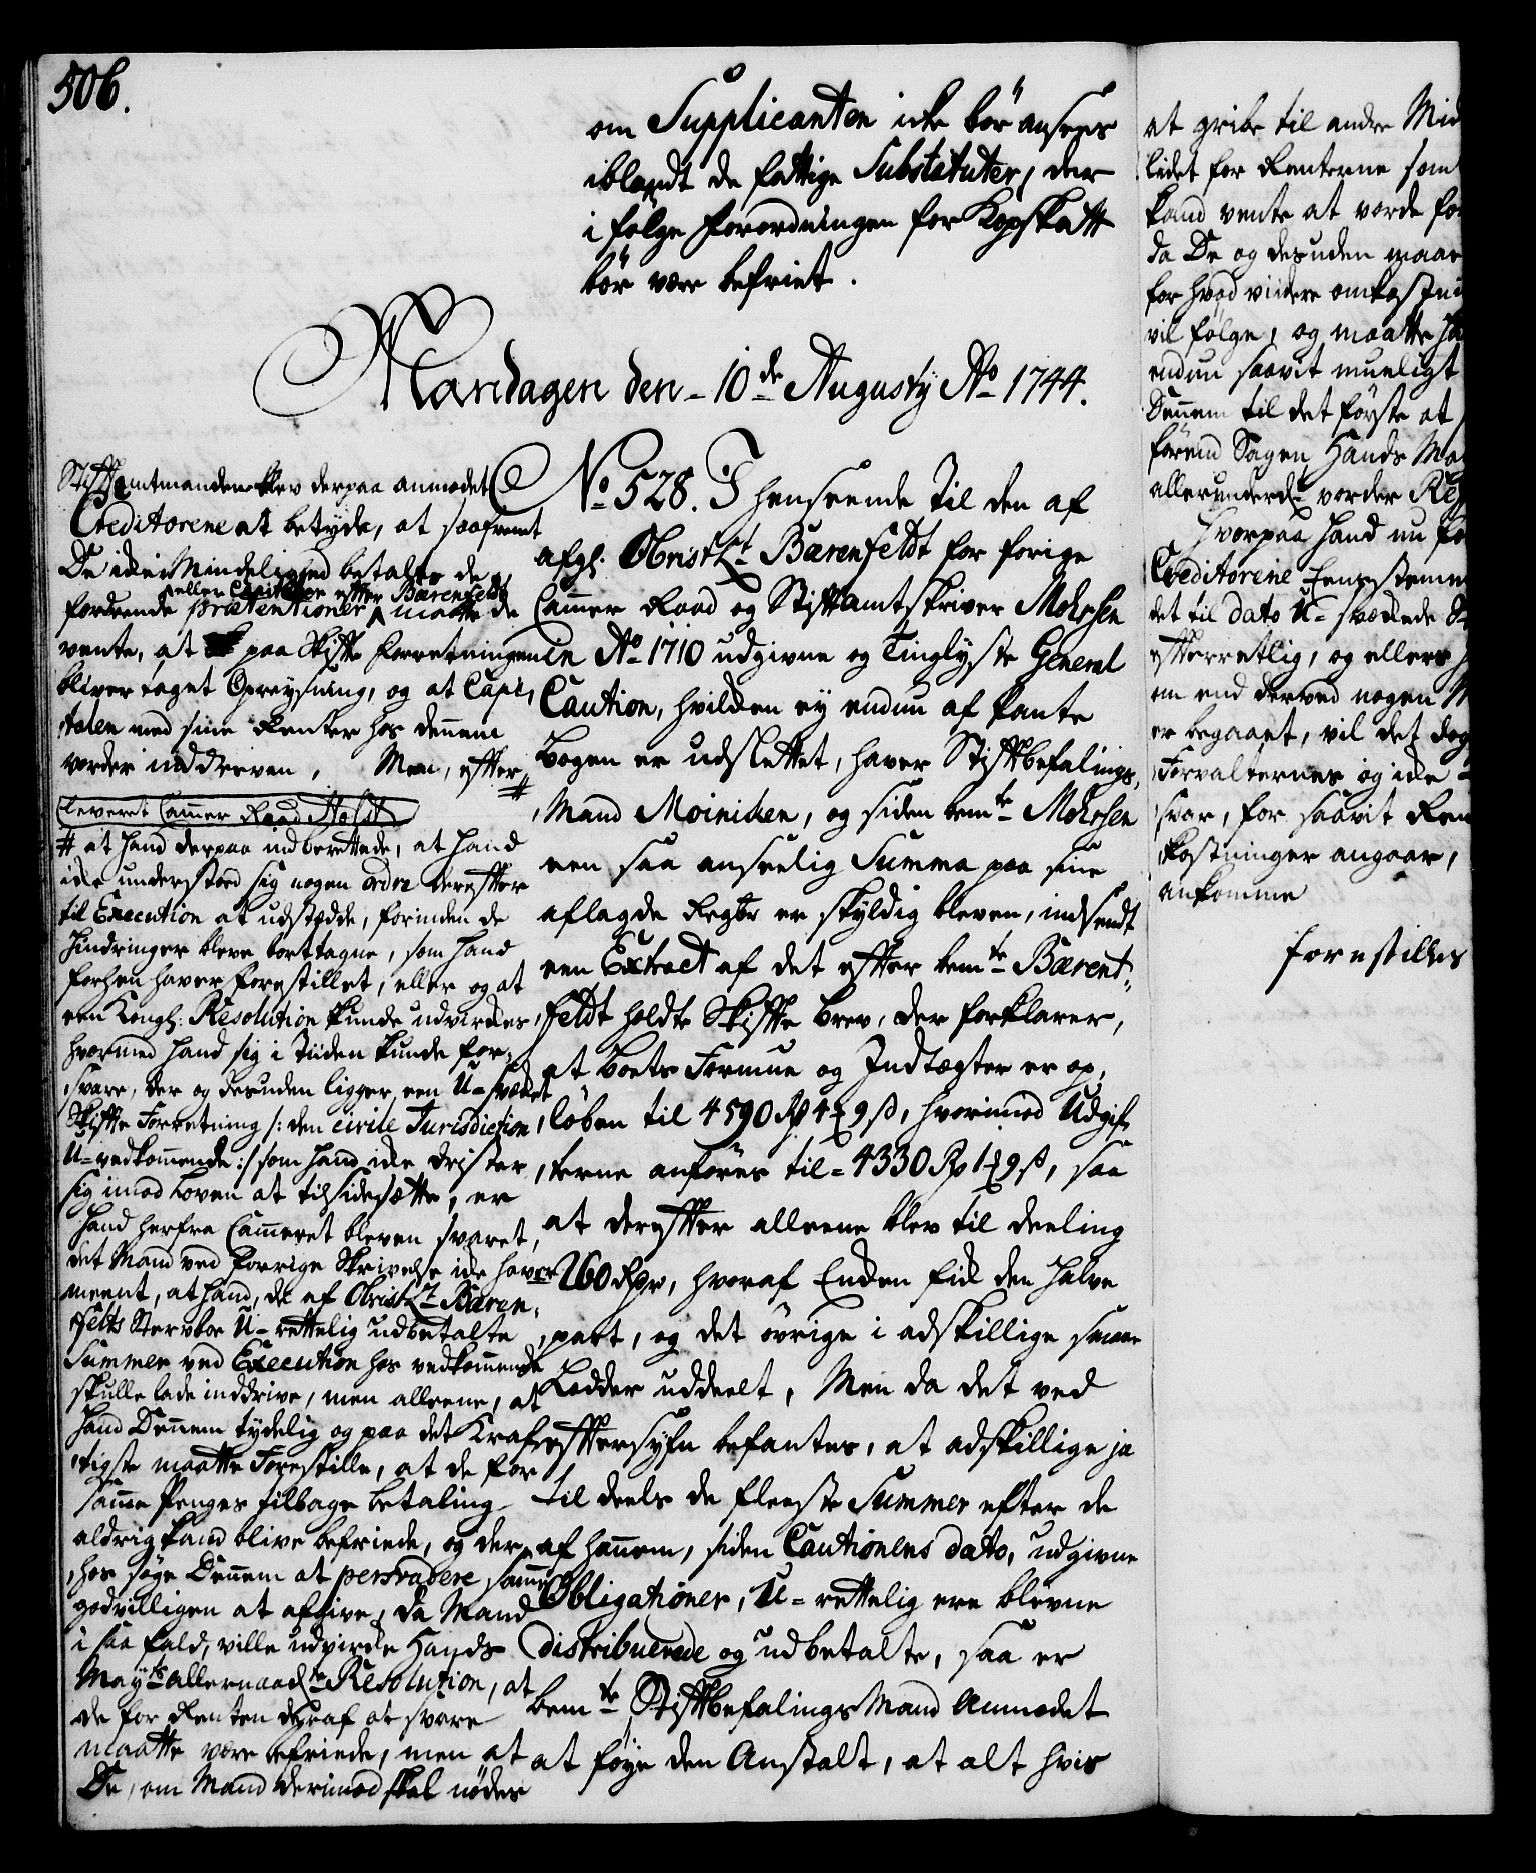 506.
om Supplicanten icke bör ansees
iblandt de fattige Substituter, der
i følge Forordningen for Kopskatt
bör være befriet.
Mandagen den 10de Augusty Ao 1744.
No 528. I henseende til den af
afgl. ObristLt Bærenfeldt for forige
Cammer Raad og Stiftamtskriver Mohrsen
in Ao 1710 udgivne og Tinglyste General
Caution, hvilcken ey endnu af Pante
bogen er udslettet, haver Stiftbefalings,
Mand Moinichen, og siden bemte Mohrsen
een saa anseelig Summa paa sine
aflagde Regbr er skyldig bleven, indsendt
een Extract af det efter bemte Bærent,
feldt holdte Skifte brev, der forklarer,
at boets Formue og Indtægter er op,
løben til 4590 Rp 4 ₰ 9 ß, hvorimod Udgif,
terne anføres til 4330 Rp 1 ₰ 9 ß, saa
at derefter alleene blev til deeling
260 Rpr, hvoraf Encken fick den halve
part, og det övrige i adskillige smaae
Lodder uddeelt, Men da det ved
eftersyn befantes, at adskillige ja
til deels de fleeste Summer efter de
af hannem, siden Cautionens dato, udgivne
Obligationer, U-rettelig ere blevne
distribuerede og udbetalte, saa er
bemte Stiftbefalings Mand Anmodet
at føye den Anstalt, at alt hvis
Stiftamtmanden blev derpaa anmodet
Creditorene at betyde, at saafremt
De icke i Mindelighed betalte de
eller Capitaler efter Bærenfeldt
fordrende prætentioner maatte de
vente, at paa Skifte Forretningen
bliver taget Opreysning, og at Capi,
talen med sine Renter hos dennem
vorder inddreven, Men, efter
leveret Cammer Raad Holdt
# at hand derpaa indberettede, at hand
icke understoed sig nogen ordre derefter
til Execution at udstædde, forinden de
Hindringer bleve borttagne, som hand
forhen haver forestillet, eller og at
een Kongl: Resolution kunde udvirckes
hvormed hand sig i Tiiden kunde for,
svare, der og desuden ligger een U-svæcket
Skifte Forretning /: den civile Jurisdiction
U-vedkommende :/ som hand icke drister
sig imod Loven at tilsidesætte, er
hand herfra Cammeret bleven svaret,
det Mand ved forrige Skrivelse icke haver
meent, at hand, de af ObristLt Bæren,
feldts Stervboe U-rettelig udbetalte
Summer ved Execution hos vedkommende
skulle lade inddrive, men alleene, at
hand Dennem tydelig og paa det Kraf,
tigste maatte Forestille, at de for
samme Penges tilbage betaling
aldrig kand blive befriede, og der,
hos søge Dennem at persvadere samme
godvilligen at afgive, da Mand
i saa fald, ville udvircke Hands
Mayts allernaadte Resolution, at
de for Renten deraf at svare
maatte være befriede, men at
De, om Mand derimod skal nødes
at gribe til andre Mid
ledet for Renterne som
kand vente at vorde for
da De og desuden maae
for hvad viidere omkostni
vil følge, og maatte ha
endnu saavit mueligt
Dennem til det første at
førend Sagen Hands Ma
allerunderdt vorder Re
Hvorpaa Hand nu fo
Creditorene Eenstemm
det til dato U-svæckede S
efterretlig, og ellers
om end derved nogen
er begaaet, vil det dog
Forvalternes og icke
svar, for saavit Ren
kostninger angaar,
ankomme
forestilles